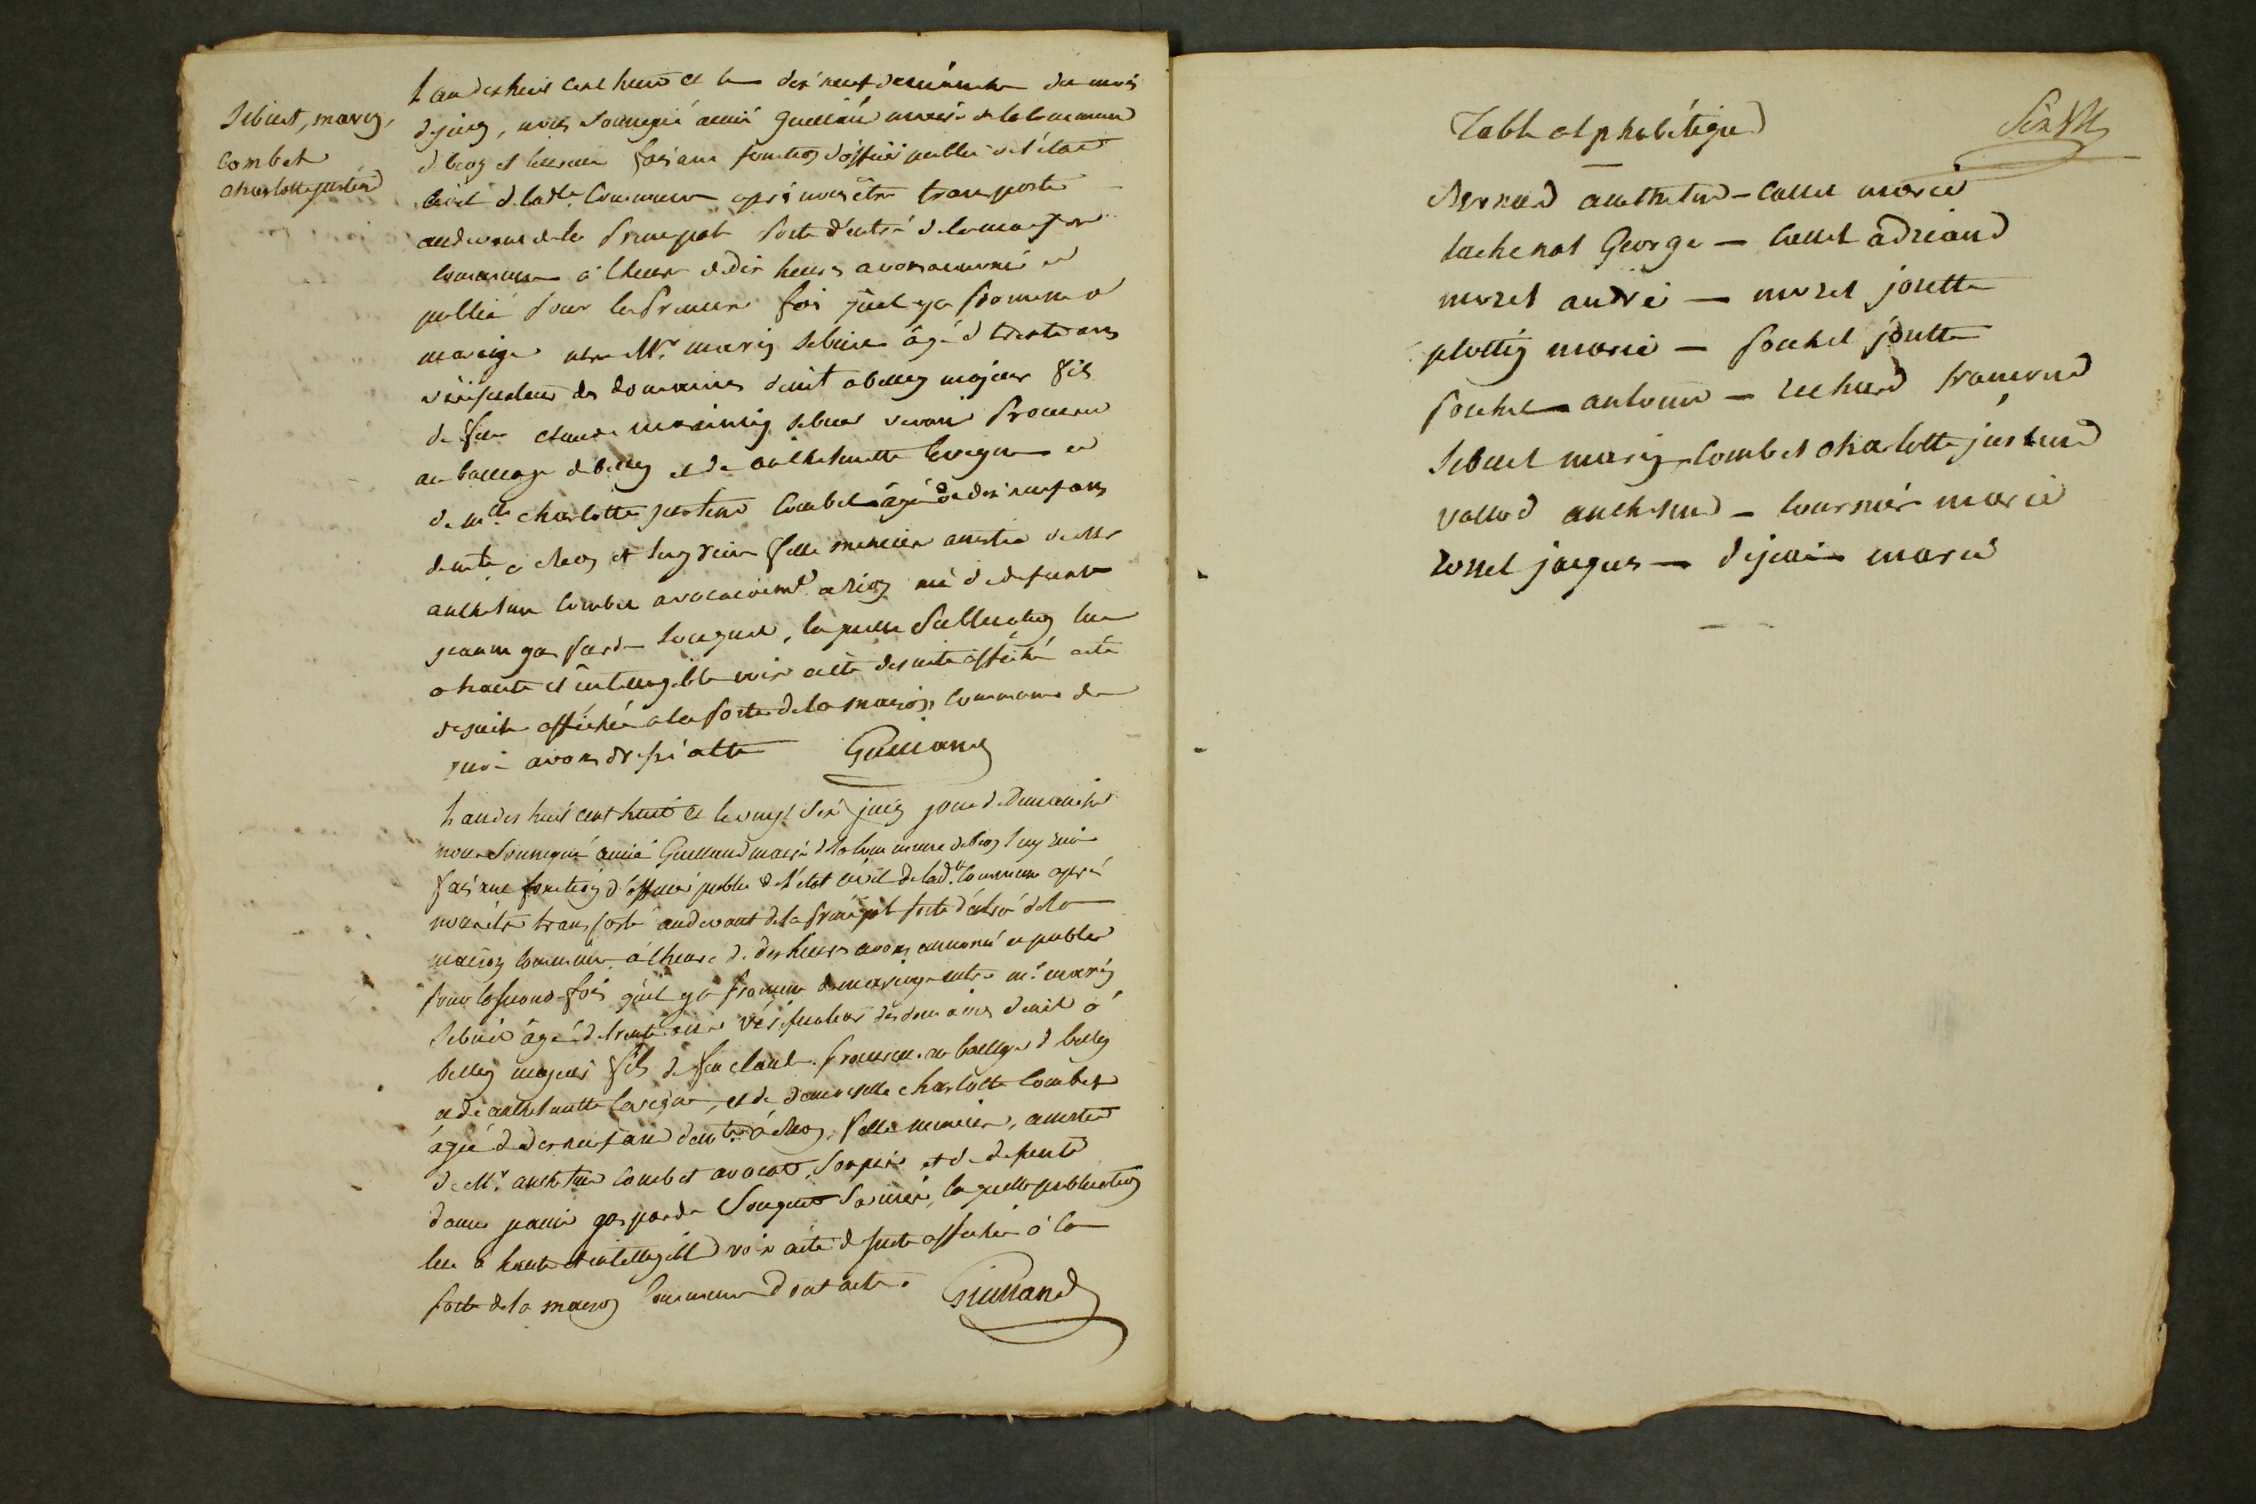 Sibuet, marin,
Combet
charlotte justine
L'an dix huit cent huit et le dix neuf dimanche du mois
de juin, nous soussigné aimé Guilland maire de la Commune
de beon et luyrieu faisant fonction d'officié public de l'état
Civil de ladte Commune après nous être transporté
audevant de la principale porte d'entré de la maison
Commune à l'heure de dix heures avons annoncé et
publié pour la premiere fois qu'il y a promesse de
mariage entre Mr marin Sibuet âgé de trente ans
vérificateur des domaines demt a belley majeur fils
de feu claude Sibuet vivant Procureur
au bailliage de belley et de anthelmette et
de mlle charlotte justine Combet âgé de dix neuf ans
demte à beon et luyrieu fille mineure de Mr
anthelme Combet avocat et de defunte
jeanne gasparde laquelle publication lue
a haute et intelligible voix a été de suite affiché a été
de suite affichée a la porte de la maison Commune de
quoi avons dressé acte Guilland
L'an dix huit cent huit et le vingt six juin jour de Dimanche
nous Soussigné aimé Guilland maire de la Commune de beon luyrieu
faisant fonction d'officié public de l'état civil de ladte Commune après
nous être transporté audevant de la principale porte d'entré de la
maison Commune à l'heure de dix heures avons annoncé et publié
pour la seconde fois qu'il y a promesse de mariage entre mr marin
Sibuet âgé de trente ans vérificateur des domaines demt à
belley majeur fils de feu claude procureur au bailliage de belley
et de anthelmette et de demoiselle charlotte Combet
âgée de dix neuf ans demte à beon, fille mineure,
de Mr anthelme Combet avocat, son père et de defunte
dame jeanne gasparde sa mère, laquelle publication
lue à haute et intelligible voix a été de suite affichée à la
porte de la maison Commune Dont acte. Guilland
Table alphabétique
Bernard anthelme – Callet marie
lachenal George – Callet adriand
mezel andré – mozet josette
plottin marie – pochet josette
pochet antoine – richard
Sibuet marin, Combet charlotte justine
vallod anthelme – tournier marie
rosset jacques – dijoin marie